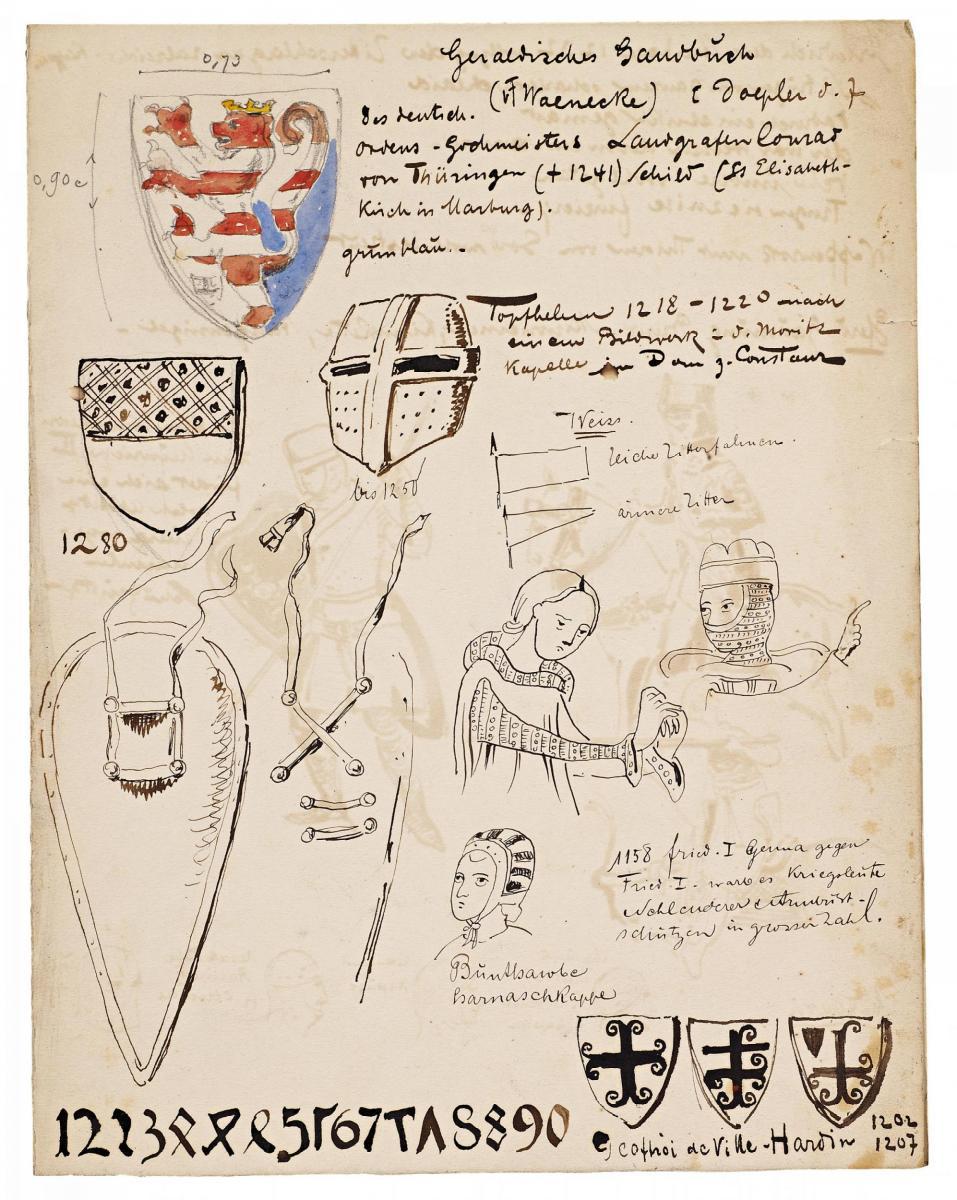 Heraldisches Handbuch
(F Warnecke) E Doepler d. J
0,73
0,90c
Des deutsch.
ordens-Hochmeisters Landgrafen Conrad
von Thüringen (+ 1241) Schild (Es Elisabeth-
Kirch in Marburg).
grünblau.-
Topfhelm 1218-1220 nach
einem Bildwerk i. d. Moritz
Kapelle im Dom z. Constanz
bis 1250
Weiss.
reiche Ritterfahnen.
ärmere Ritter
1280
1158 fried. I Genua gegen
Fried. I. warb es Kriegsleute
Schleuderer & Armbrust-
schützen in grosser Zahl.
Buntharobe
harnaschkappe
1202
1207
Geoffroi de Ville-Hardin